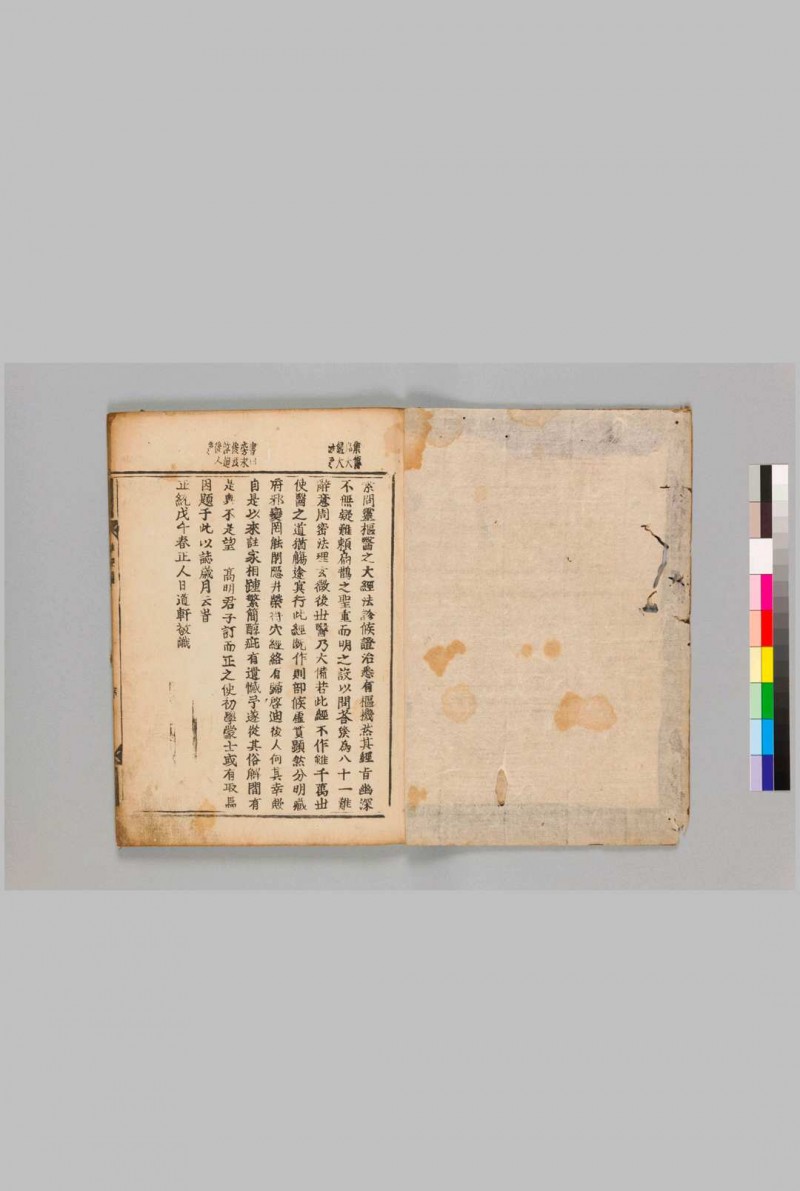 素問靈樞醫之大經法診候證治悉有樞機然其經旨幽深
不無疑難賴扁鵲之聖重而明之設以問荅媐為八十一難
辭意周密法理玄微後世醫乃大備若此經不作雖千萬世
使醫之道猶觴途冥行此經既作則部候虛實顯然分明藏
府邪變罔能閉隱井榮 穴經絡有歸啓迪後人何其幸歟
自是以來註家相踵繁簡醇疵有遺憾予遂從其俗解間有
是與不是望 高明君子訂而正之使初學蒙士或有取焉
因題于此以誌歲月云旹
正統戊午春正人日道軒敬識